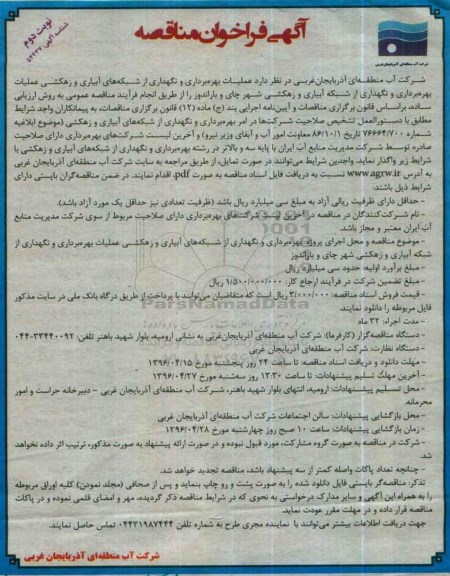 آگهی فراخوان مناقصه
نوبت دوم
شرکت آب منطقه‌ای آذربایجان‌غربی
شرکت آب منطقه‌ای آذربایجان‌غربی در نظر دارد عملیات بهره‌برداری و نگهداری از شبکه‌های آبیاری و زهکشی عملیات
بهره‌برداری و نگهداری از شبکه آبیاری و زهکشی شهر چای و باراندوز را از طریق انجام فرآیند مناقصه عمومی به روش ارزیابی
ساده، براساس قانون برگزاری مناقصات و آیین‌نامه اجرایی بند (ج) ماده (۱۲) قانون برگزاری مناقصات، به پیمانکاران واجد شرایط
مطابق با دستورالعمل تشخیص صلاحیت شرکت‌ها در امر بهره‌برداری و نگهداری از شبکه‌های آبیاری و زهکشی (موضوع ابلاغیه
شماره ۷۶۶۶۴/۷۰۰ تاریخ ۸۶/۱۰/۱ معاونت امور آب و آبفای وزیر نیرو) و آخرین لیست شرکت‌های بهره‌برداری دارای صلاحیت
صادره توسط شرکت مدیریت منابع آب ایران با پایه سه و بالاتر در رشته بهره‌برداری و نگهداری از شبکه‌های آبیاری و زهکشی با
شرایط زیر واگذار نماید. واجدین شرایط می‌توانند در صورت تمایل، از طریق مراجعه به سایت شرکت آب منطقه‌ای آذربایجان غربی
به آدرس www.agrw.ir نسبت به دریافت فایل اسناد مناقصه به صورت pdf، اقدام نمایند. در ضمن مناقصه‌گران بایستی دارای
شرایط ذیل باشند:
- حداقل دارای ظرفیت ریالی آزاد به مبلغ سی میلیارد ریال باشد (ظرفیت تعدادی نیز حداقل یک مورد آزاد باشد).
- نام شرکت‌کنندگان در مناقصه در آخرین لیست شرکت‌های بهره‌برداری دارای صلاحیت مربوط از سوی شرکت مدیریت منابع
آب ایران معتبر و مجاز باشد.
- موضوع مناقصه و محل اجرای پروژه: بهره‌برداری و نگهداری از شبکه‌های آبیاری و زهکشی عملیات بهره‌برداری و نگهداری از
شبکه آبیاری و زهکشی شهر چای و باراندوز
- مبلغ برآورد اولیه: حدود سی میلیارد ریال
- مبلغ تضمین شرکت در فرآیند ارجاع کار: ۱/۵۰۰/۰۰۰/۰۰۰ ریال
- قیمت فروش اسناد مناقصه: ۳/۰۰۰/۰۰۰ ریال است که متقاضیان می‌توانند با پرداخت از طریق درگاه بانک ملی در سایت مذکور
فایل مربوطه را دانلود نمایند.
- مدت اجراء: ۳۲ ماه
- دستگاه مناقصه‌گزار (کارفرما): شرکت آب منطقه‌ای آذربایجان‌غربی به نشانی ارومیه، بلوار شهید باهنر تلفن: ۳۳۴۴۰۰۹۲-۰۴۴
- دستگاه نظارت: شرکت آب منطقه‌ای آذربایجان غربی
- مهلت دانلود و دریافت اسناد مناقصه: تا ساعت ۲۴ روز پنجشنبه مورخ ۱۳۹۶/۰۴/۱۵
- آخرین مهلت تسلیم پیشنهادات: تا ساعت ۱۳:۳۰ روز سه‌شنبه مورخ ۱۳۹۶/۰۴/۲۷
- محل تسلیم پیشنهادات: ارومیه، انتهای بلوار شهید باهنر، شرکت آب منطقه‌ای آذربایجان غربی - دبیرخانه حراست و امور
محرمانه.
- محل بازگشایی پیشنهادات: سالن اجتماعات شرکت آب منطقه‌ای آذربایجان غربی
- زمان بازگشایی پیشنهادات: ساعت ۱۰ صبح روز چهارشنبه مورخ ۱۳۹۶/۰۴/۲۸
- شرکت در مناقصه به صورت گروه مشارکت، مورد قبول نبوده و در صورت ارائه پیشنهاد به صورت مذکور، ترتیب اثر داده نخواهد
شد.
- چنانچه تعداد پاکات واصله کمتر از سه پیشنهاد باشد، مناقصه تجدید خواهد شد.
تذکر: مناقصه‌گر بایستی فایل دانلود شده را به صورت پشت و رو چاپ بنماید و پس از صحافی (مجلد نمودن) کلیه اوراق مربوطه
را به همراه این آگهی و سایر مدارک درخواستی به نحوی که در شرایط مناقصه ذکر گردیده، مهر و امضای قلمی نموده و در پاکات
مناقصه قرار داده و در مهلت مقرر عودت نماید.
جهت دریافت اطلاعات بیشتر می‌توانند با نماینده مجری طرح به شماره تلفن ۰۴۴۳۱۹۸۷۴۴۴ تماس حاصل نمایند.
شرکت آب منطقه‌ای آذربایجان غربی
ParsNamadData